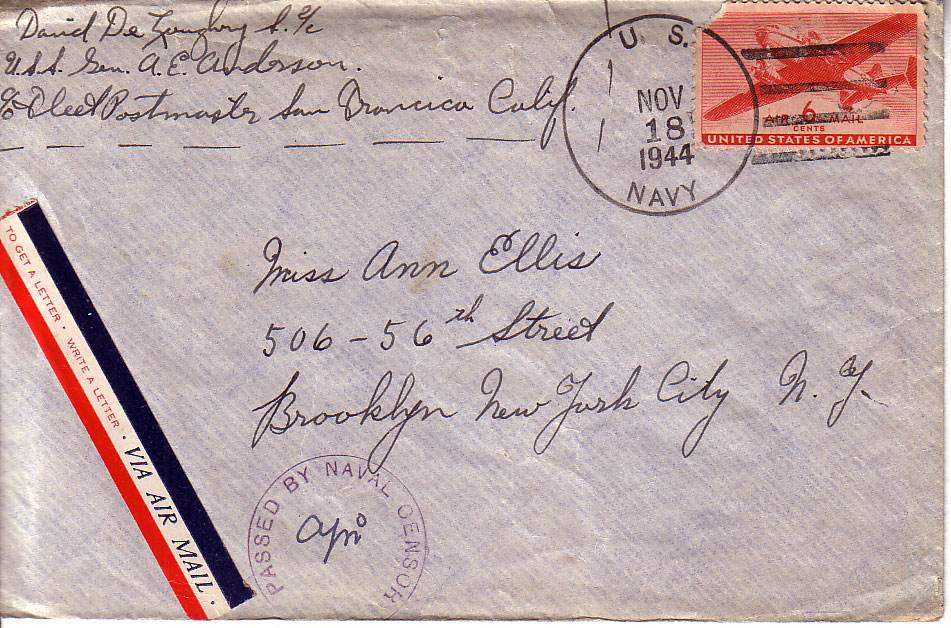 David De Loughry S. 2/c
U.S.S. Gen. A.E. Anderson.
c/o Fleet Postmaster San Francisco Calif.
U. S.
NOV
18
1944
NAVY
AIR 6 MAIL
CENTS
UNITED STATES OF AMERICA
TO GET A LETTER · WRITE A LETTER ·
VIA AIR MAIL ·
Miss Ann Ellis
506 - 56th Street
Brooklyn New York City N. Y.
PASSED BY NAVAL CENSOR